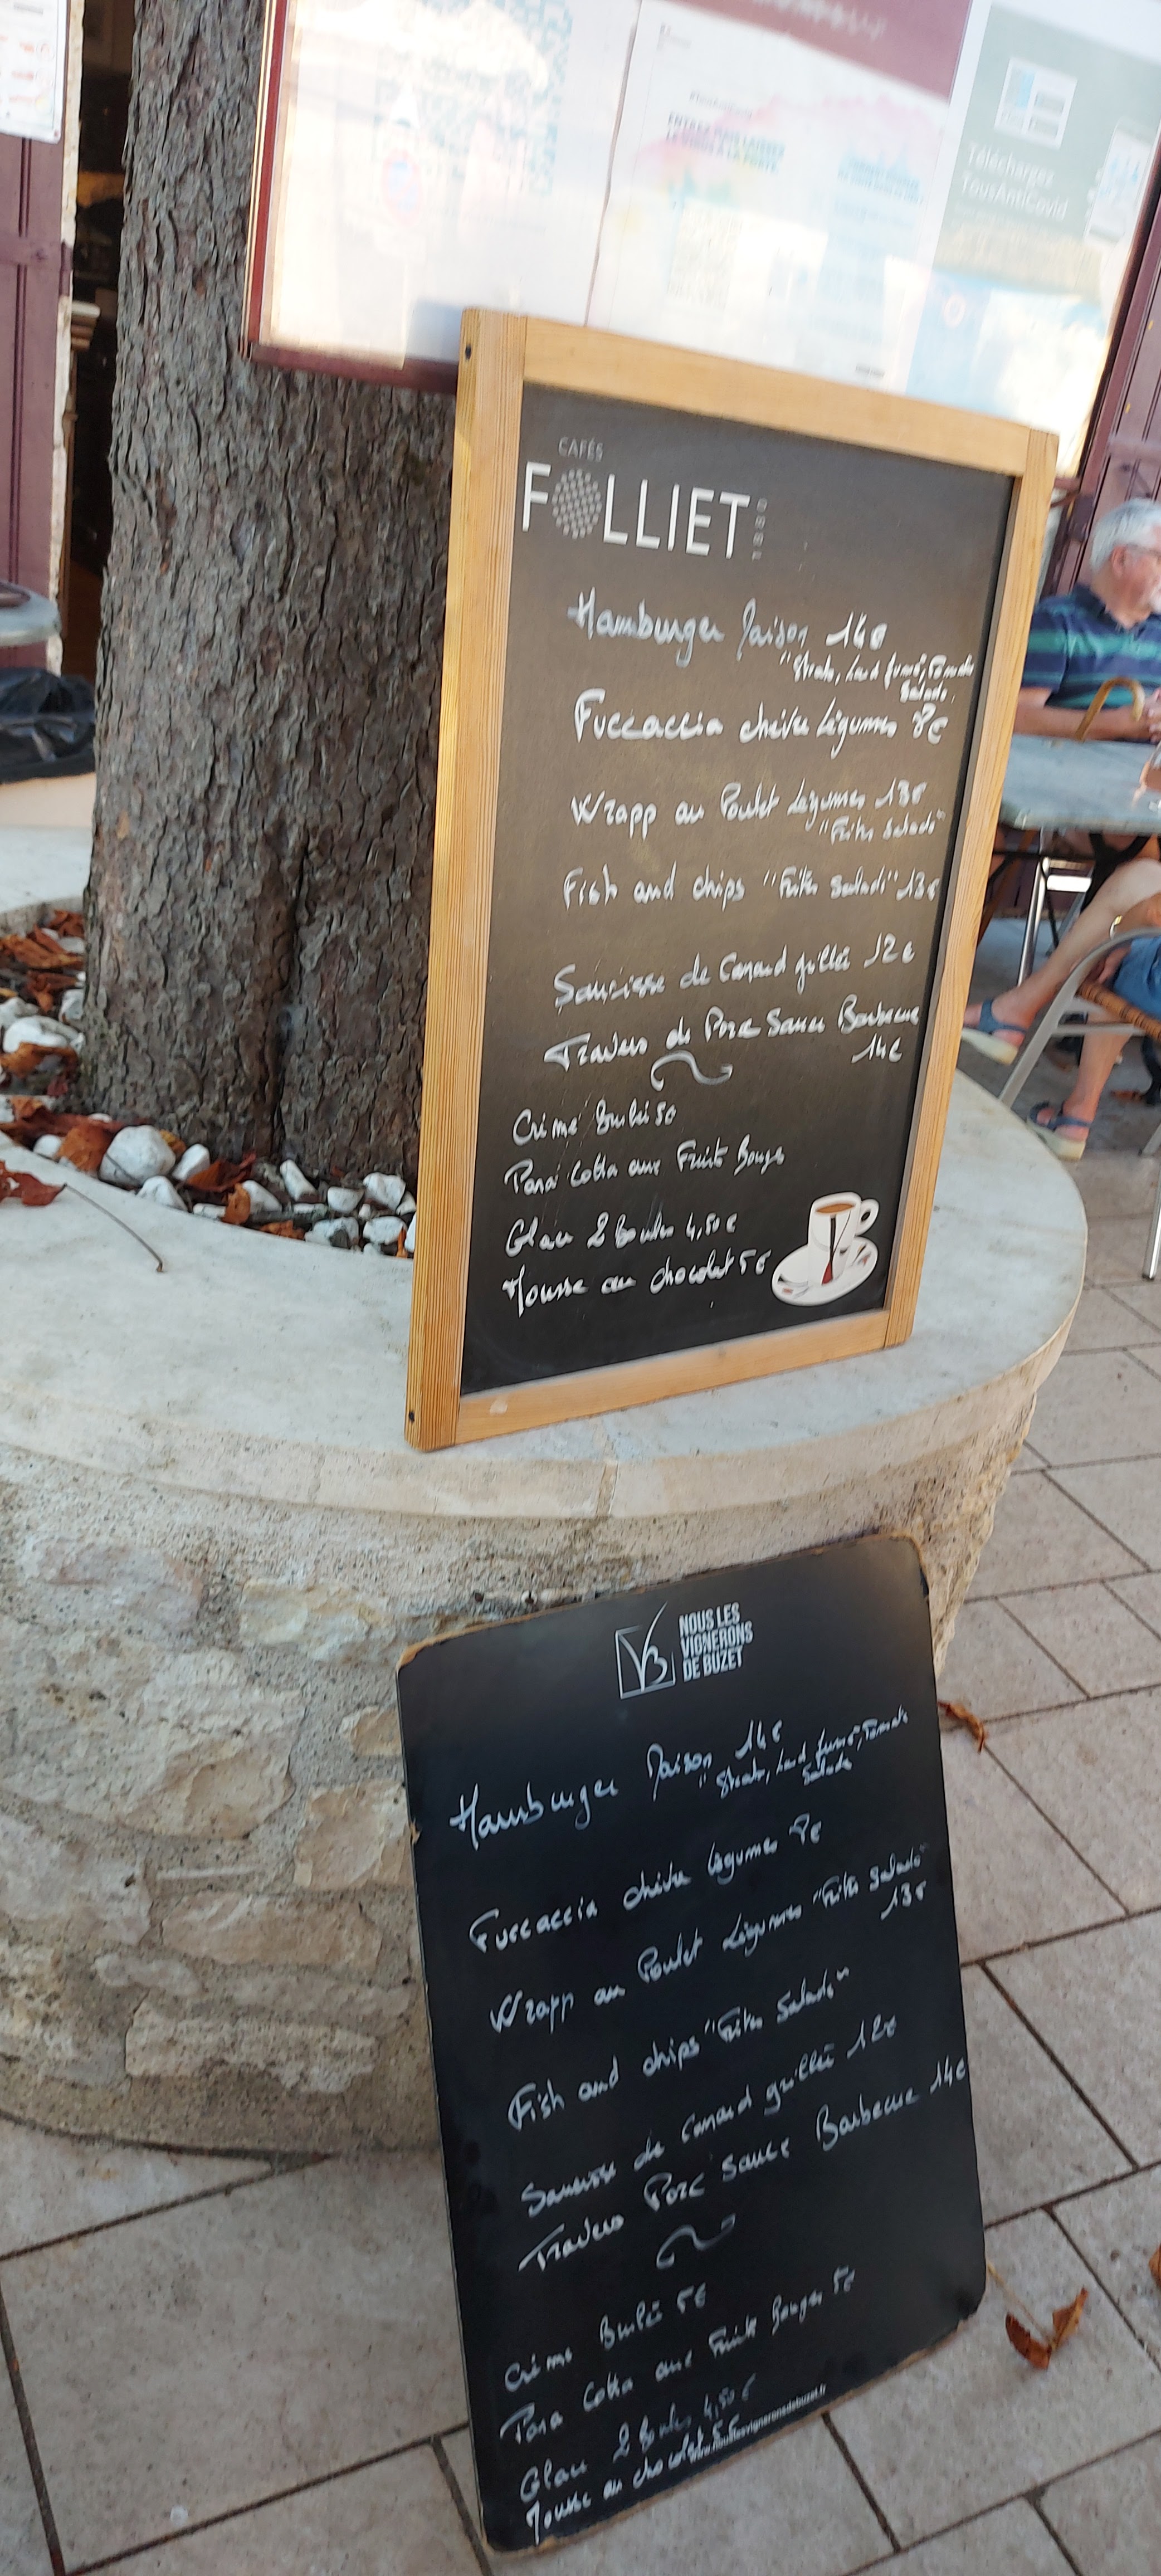 Téléchargez
TousAntiCovid
CAFÉS
FOLLIET
1880
Hamburger Maison 14€
"Steak, Lard fumé, Tomate
Salade.
Fuccaccia chèvre Légumes 8€
Wrapp au Poulet Légumes 13€
"Frites Salade"
Fish and chips "Frites Salade" 13€
Saucisse de Canard grillée 12€
Travers de Porc Sauce Barbecue
14€
Crème Brulée 5€
Pana Cotta aux Fruits Rouges
Glace 2 Boules 4,50€
Mousse au chocolat 5€
VB
NOUS LES
VIGNERONS
DE BUZET
Hamburger Maison 14€
"Steak, Lard fumé, Tomate
Salade
Fuccaccia chèvre Légumes 8€
Wrapp au Poulet Légumes "Frites Salade"
13€
Fish and chips "Frites Salade"
Saucisse de Canard grillée 12€
Travers Porc Sauce Barbecue 14€
Crème Brulée 5€
Pana Cotta aux Fruits Rouges 5€
Glace 2 Boules 4,50€
Mousse au chocolat 5€
www.nouslesvigneronsdebuzet.fr